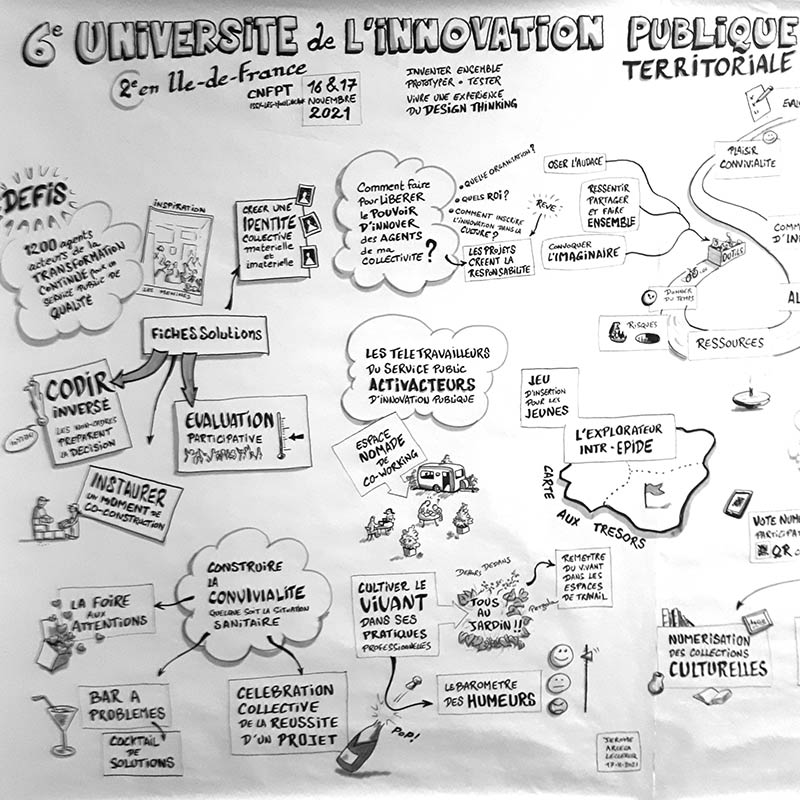 6e UNIVERSITE de L'INNOVATION PUBLIQUE
TERRITORIALE
2e en Ile-de-France
CNFPT
16 & 17
NOVEMBRE
2021
INVENTER ENSEMBLE
PROTOTYPER • TESTER
VIVRE UNE EXPERIENCE
DU DESIGN THINKING
DEFIS
1200 agents
acteurs de la
TRANSFORMATION
CONTINUE pour un
SERVICE PUBLIC DE
QUALITÉ
INSPIRATION
LES MENINES
CREER UNE
IDENTITE
COLLECTIVE
matérielle et
imatérielle
FICHES SOLUTIONS
CODIR
INVERSÉ
LES NON-CADRES
PREPARENT
LA DECISION
EVALUATION
PARTICIPATIVE
INSTAURER
UN MOMENT DE
CO-CONSTRUCTION
Comment faire
pour LIBERER
le POUVOIR
D'INNOVER
des AGENTS
de ma
COLLECTIVITÉ ?
• QUELLE ORGANISATION?
• QUELS ROI?
• COMMENT INSCRIRE
L'INNOVATION DANS LA
CULTURE?
LES PROJETS
CRÉENT LA
RESPONSABILITE
REVE
OSER L'AUDACE
RESSENTIR
PARTAGER
ET FAIRE
ENSEMBLE
CONVOQUER
L'IMAGINAIRE
OUTILS
DONNER
DU TEMPS
RISQUES
RESSOURCES
PLAISIR
CONVIVIALITE
EVAL
COMM
D'IN
AL
LES TELETRAVAILLEURS
DU SERVICE PUBLIC
ACTIVACTEURS
D'INNOVATION PUBLIQUE
ESPACE
NOMADE
DE
CO-WORKING
JEU
D'INSERTION
POUR LES
JEUNES
L'EXPLORATEUR
INTR-EPIDE
CARTE
AUX TRESORS
VOTE NUM
PARTICIPA
QR
CONSTRUIRE
LA
CONVIVIALITE
QUELQUE SOIT LA SITUATION
SANITAIRE
LA FOIRE
AUX
ATTENTIONS
BAR A
PROBLEMES
COCKTAIL
DE
SOLUTIONS
CELEBRATION
COLLECTIVE
DE LA REUSSITE
D'UN PROJET
POP!
CULTIVER LE
VIVANT
DANS SES
PRATIQUES
PROFESSIONNELLES
DEHORS DEDANS
TOUS
AU
JARDIN!!
Pergola
REMETTRE
DU VIVANT
DANS LES
ESPACES
DE TRAVAIL
LE BAROMETRE
DES HUMEURS
NUMERISATION
DES COLLECTIONS
CULTURELLES
JEROME